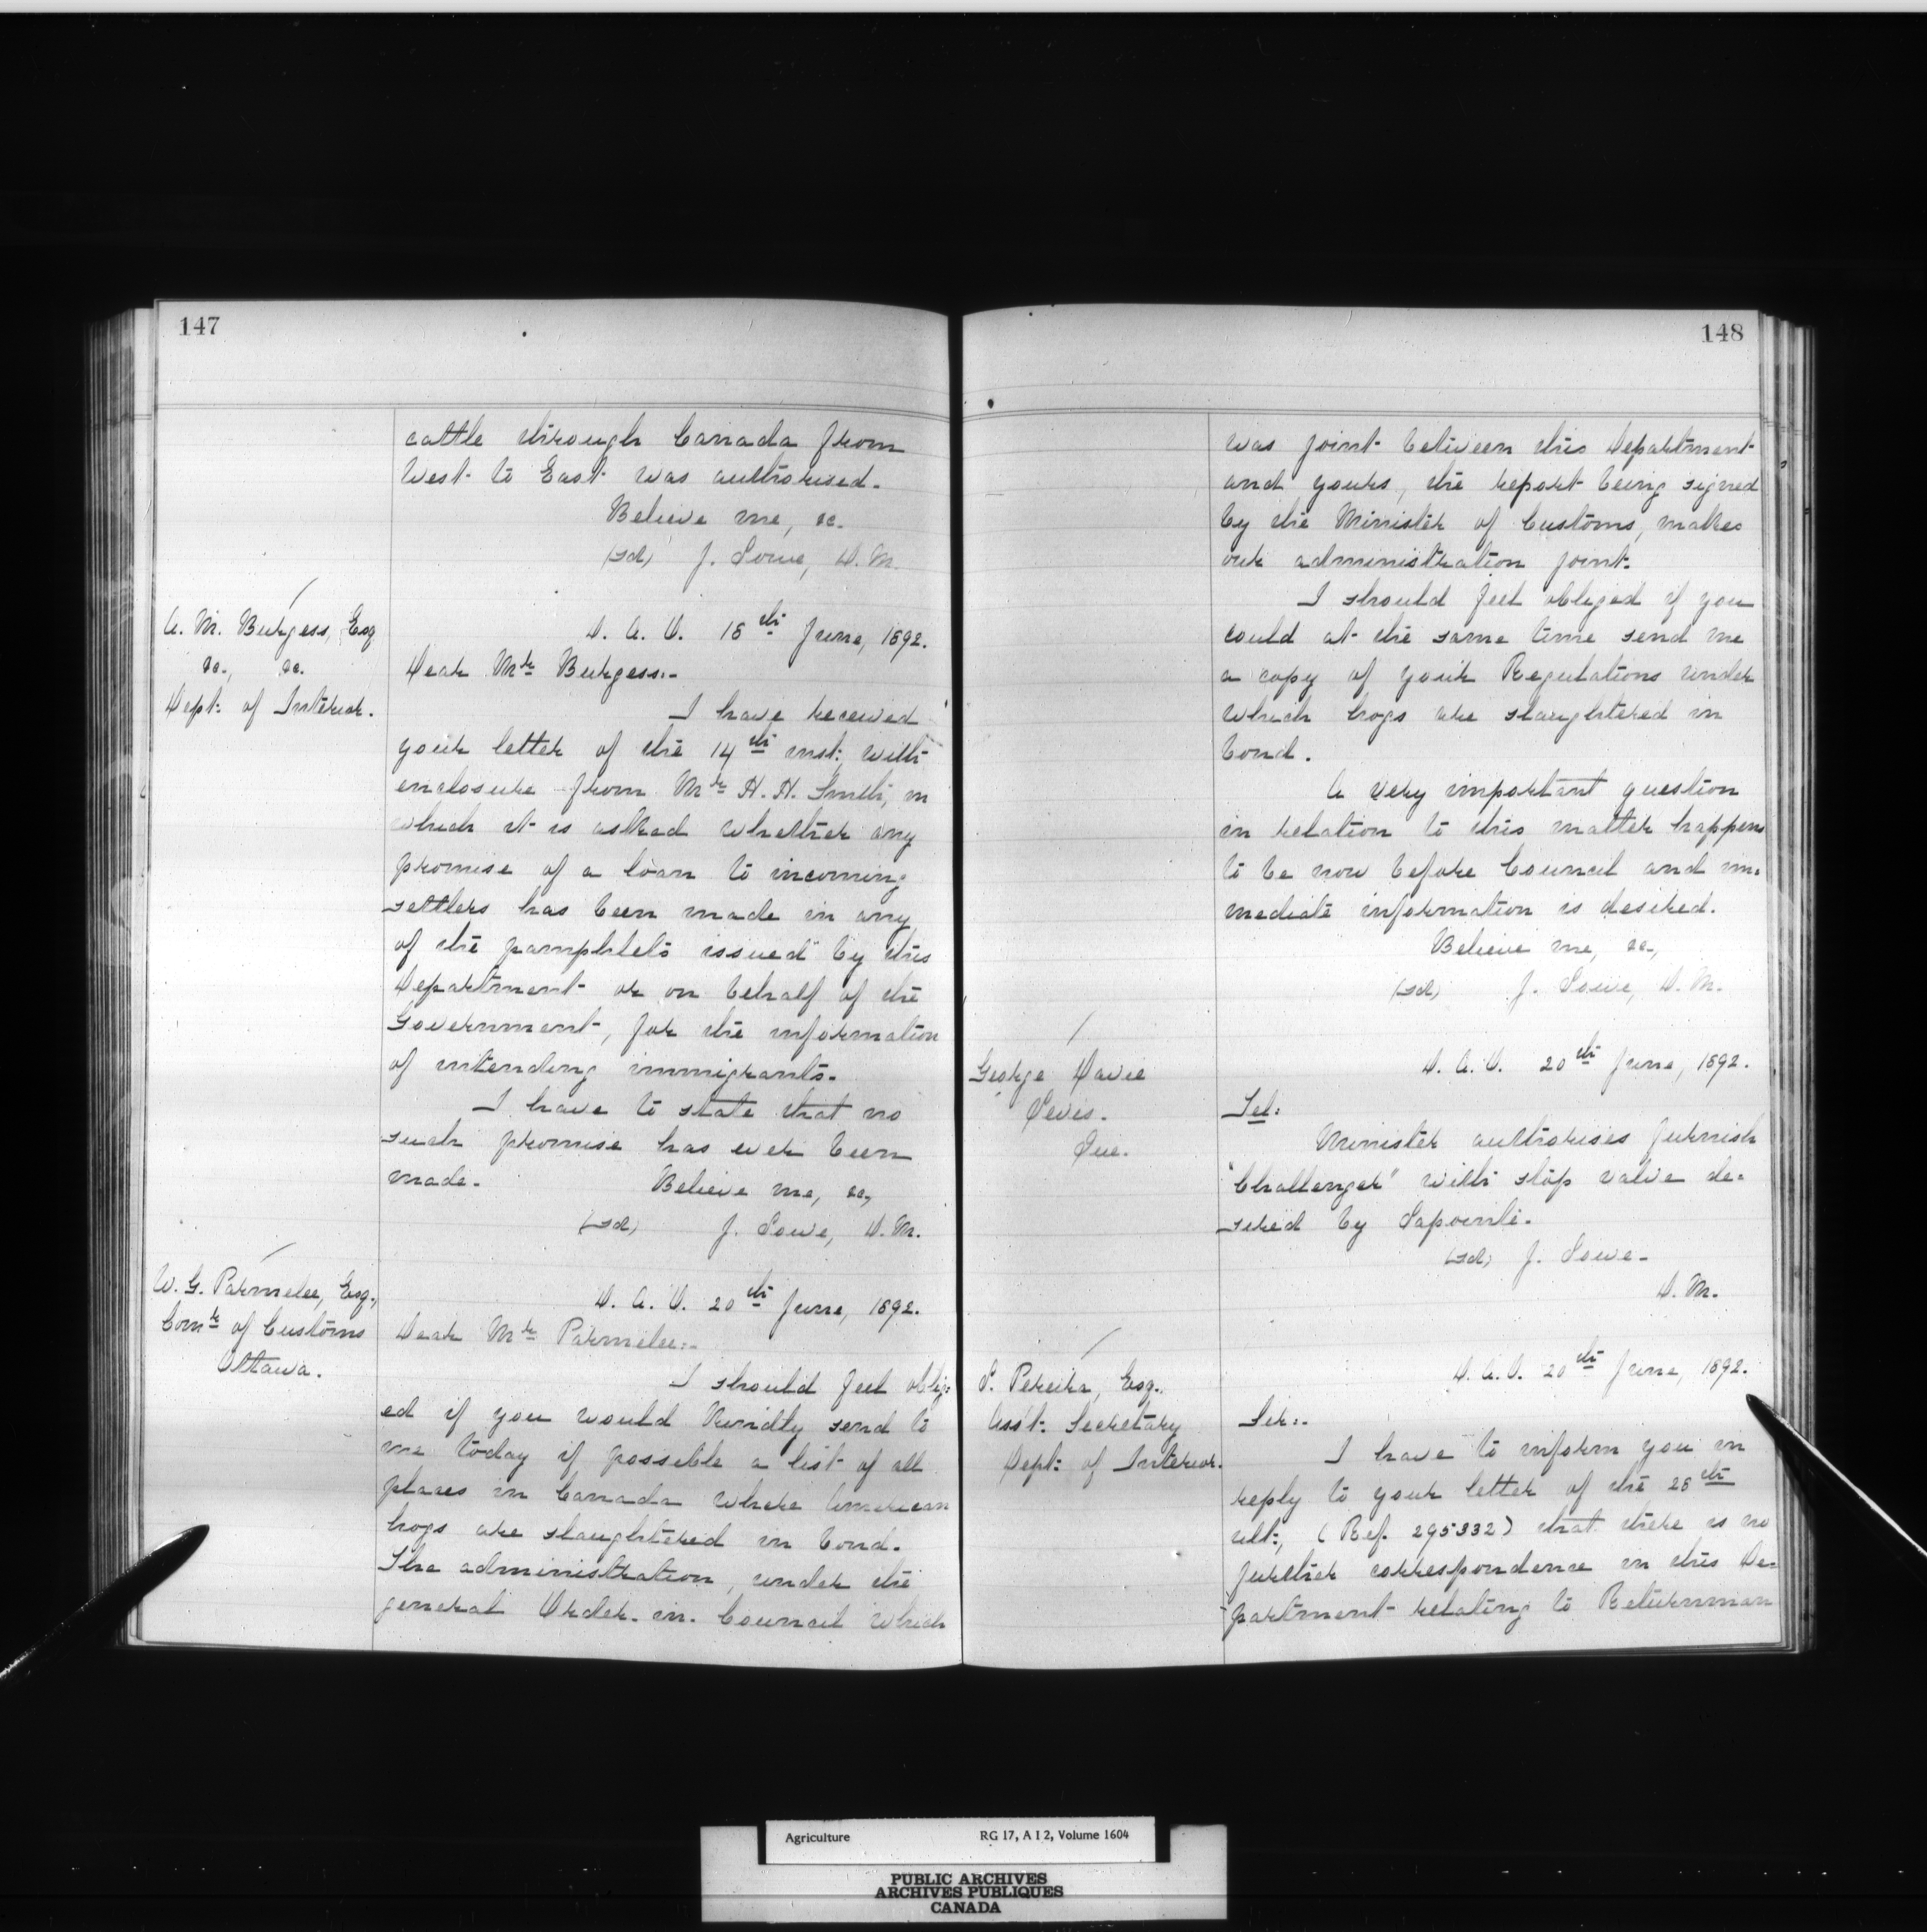 147
cattle through Canada from
West to East was authorised.
Believe me, &c.
(sd) J. Lowe, D. M.
A. M. Burgess, Esq
&c., &c.
Dept: of Interior.
D. A. O. 18th June, 1892.
Dear Mr Burgess:-
I have received
your letter of the 14th inst: with
enclosure from Mr H. H. Smith, in
which it is asked whether any
promise of a loan to incoming
settlers has been made in any
of the pamphlets issued by this
Department or on behalf of the
Government, for the information
of intending immigrants.
I have to state that no
such promise has ever been
made. Believe me, &c,
(sd) J. Lowe, D. M.
W. G. Parmelee, Esq.,
Comr of Customs
Ottawa.
D. A. O. 20th June, 1892.
Dear Mr Parmelee:-
I should feel oblig=
ed if you would kindly send to
me today if possible a list of all
places in Canada where American
hogs are slaughtered in bond.
The administration, under the
general Order-in-Council which
148
was joint between this Department
and yours, the report being signed
by the Minister of Customs, makes
our administration joint.
I should feel obliged if you
could at the same time send me
a copy of your Regulations under
which hogs are slaughtered in
bond.
A very important question
in relation to this matter happens
to be now before Council and im=
mediate information is desired.
Believe me, &c,
(sd) J. Lowe, D. M.
George Davie
Levis.
Que.
D. A. O. 20th June, 1892.
Tel:
Minister authorises furnish
"Challenger" with stop valve de=
sired by Lapointe.
(sd) J. Lowe-
D. M.
L. Pereira, Esq.
Ass't: Secretary
Dept: of Interior.
D. A. O. 20th June, 1892.
Sir:-
I have to inform you in
reply to your letter of the 28th
ult:, (Ref. 295332) that there is no
further correspondence in this De=
partment relating to Returnman
Agriculture RG 17, A I 2, Volume 1604
PUBLIC ARCHIVES
ARCHIVES PUBLIQUES
CANADA